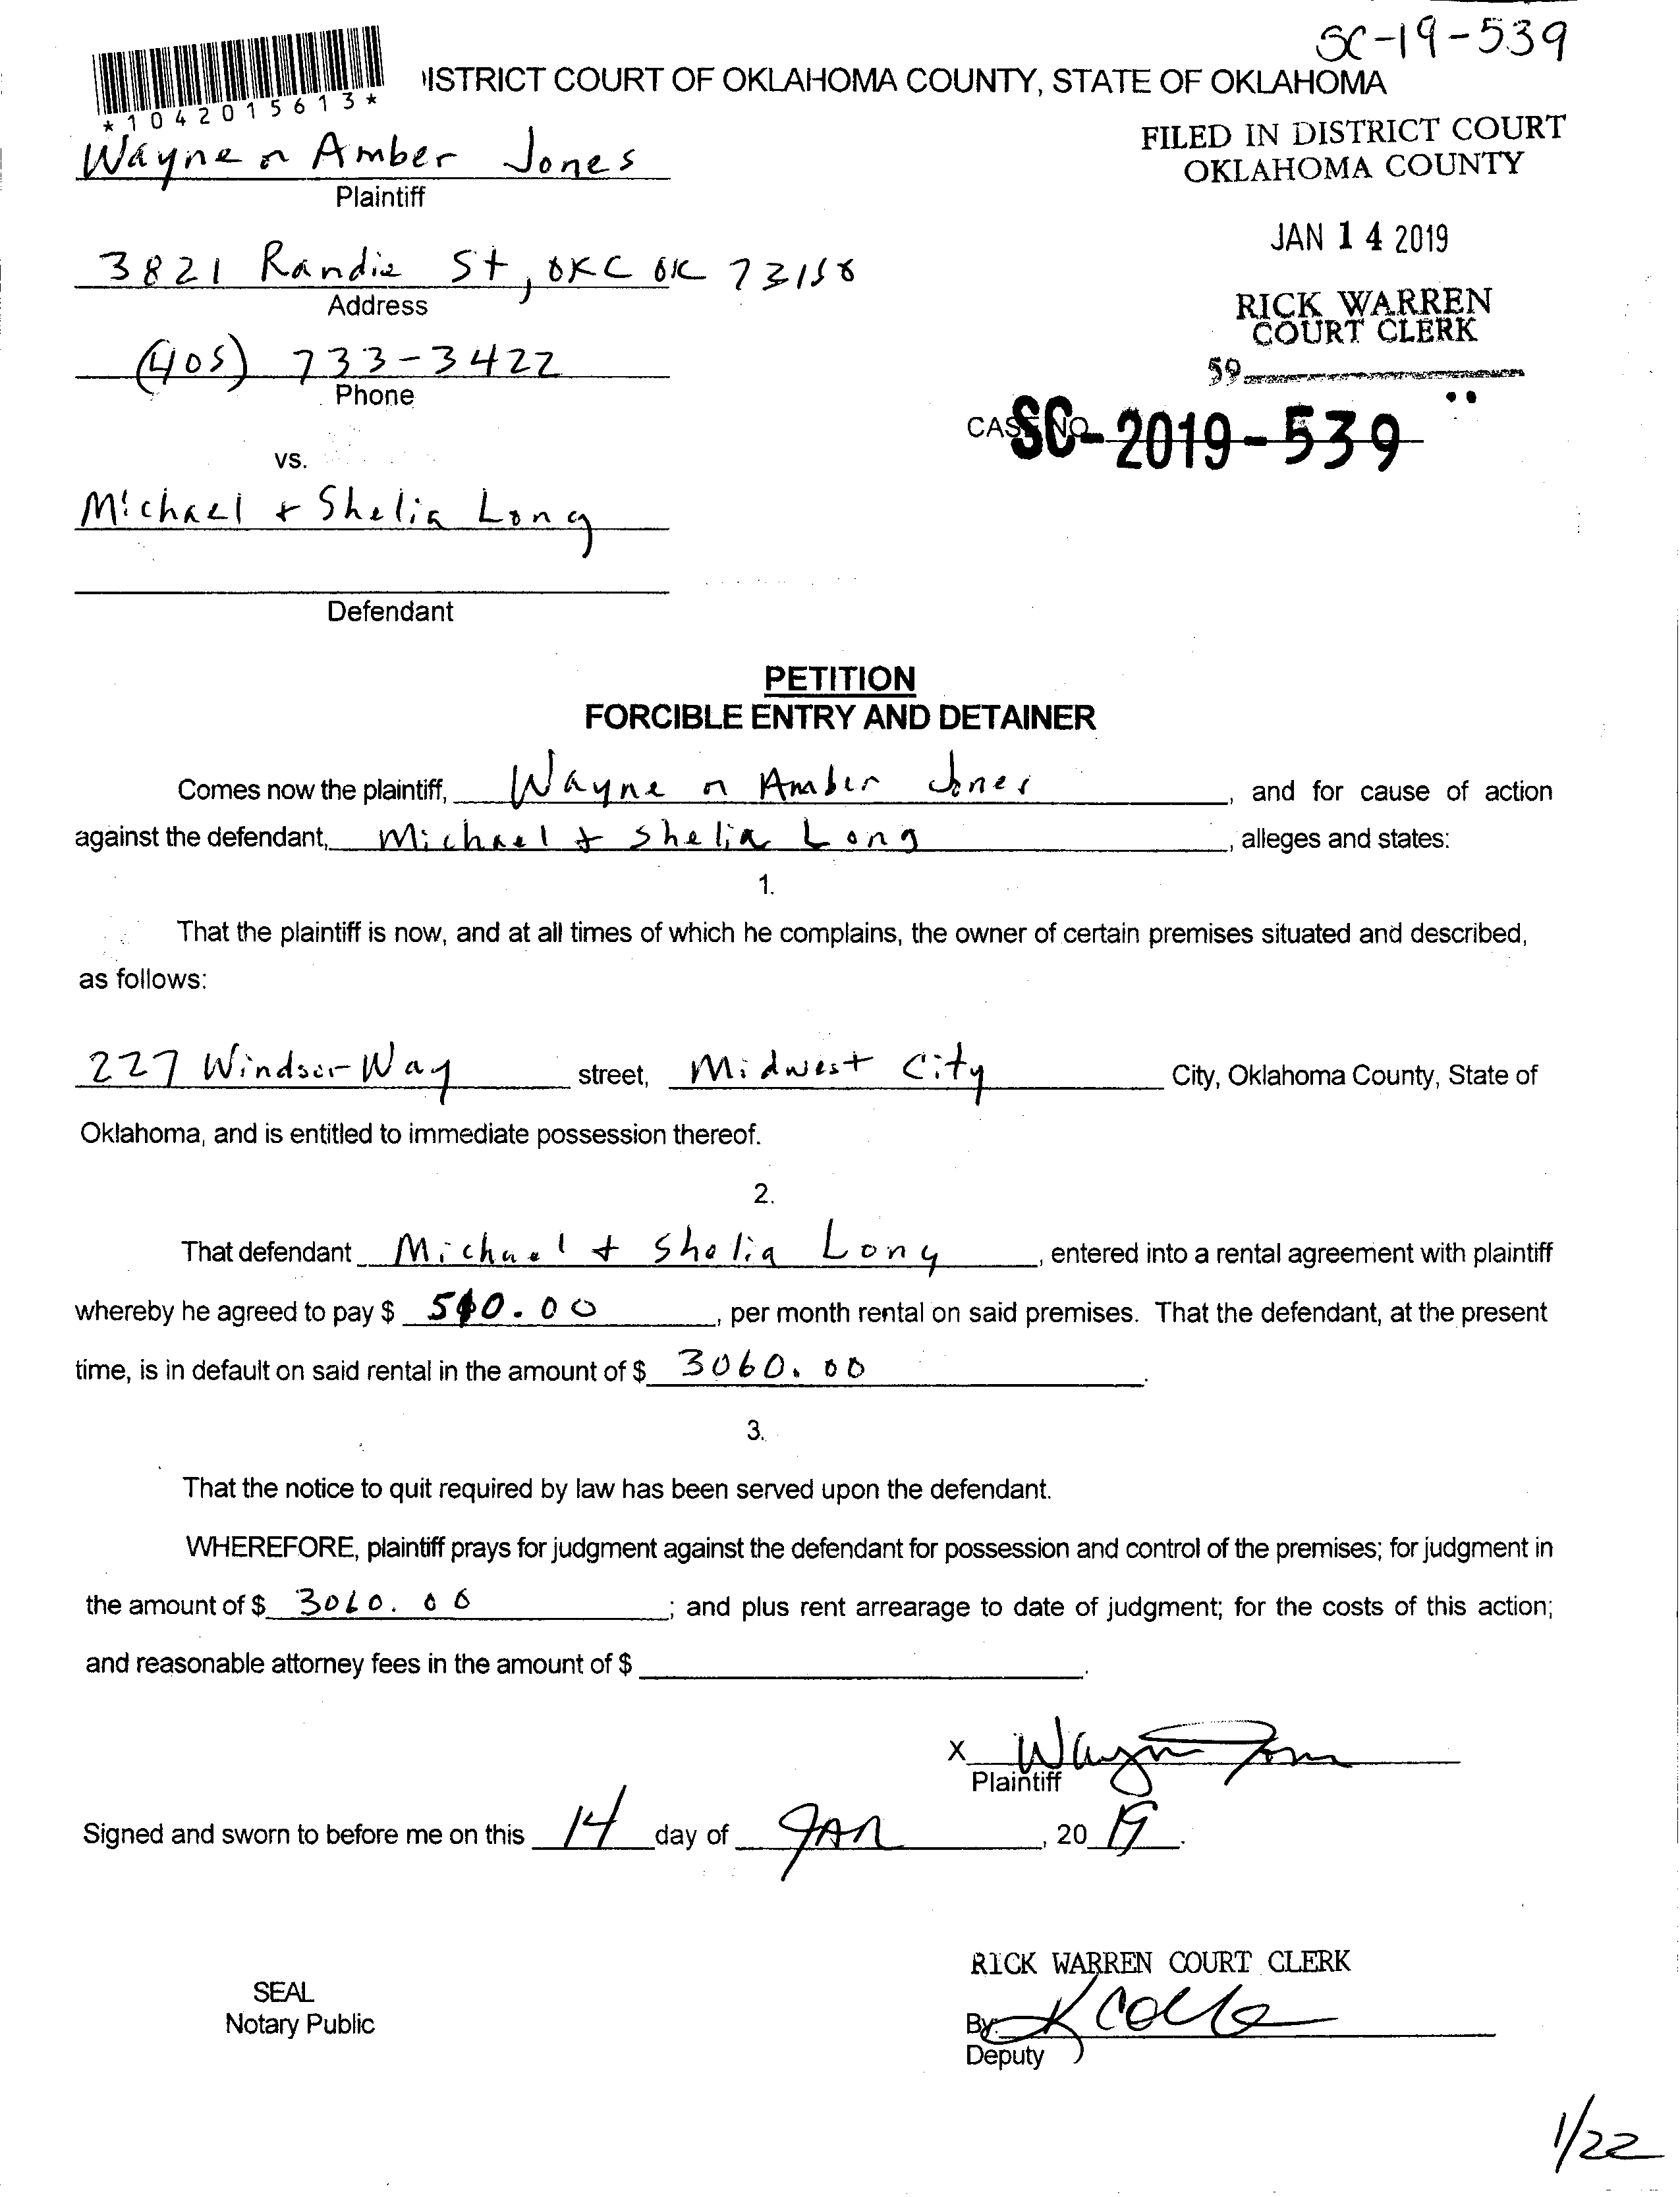 SC-19-539
*1042015613*
'ISTRICT COURT OF OKLAHOMA COUNTY, STATE OF OKLAHOMA
FILED IN DISTRICT COURT
OKLAHOMA COUNTY
Wayne n Amber Jones
Plaintiff
JAN 14 2019
3821 Randie St, OKC OK 73150
Address
RICK WARREN
COURT CLERK
59
(405) 733-3422
Phone
CASE NO. SC-2019-539
vs.
Michael + Shelia Long
Defendant
PETITION
FORCIBLE ENTRY AND DETAINER
Comes now the plaintiff, Wayne n Amber Jones, and for cause of action
against the defendant, Michael + Shelia Long, alleges and states:
1.
That the plaintiff is now, and at all times of which he complains, the owner of certain premises situated and described,
as follows:
227 Windsor Way street, Midwest City City, Oklahoma County, State of
Oklahoma, and is entitled to immediate possession thereof.
2.
That defendant Michael + Shelia Long, entered into a rental agreement with plaintiff
whereby he agreed to pay $ , per month rental on said premises. That the defendant, at the present
time, is in default on said rental in the amount of $ 3060.00.
3.
That the notice to quit required by law has been served upon the defendant.
WHEREFORE, plaintiff prays for judgment against the defendant for possession and control of the premises; for judgment in
the amount of $ 3060.00; and plus rent arrearage to date of judgment; for the costs of this action;
and reasonable attorney fees in the amount of $ .
X Wayne Jones
Plaintiff
Signed and sworn to before me on this 14 day of JAN, 2019.
RICK WARREN COURT CLERK
SEAL
Notary Public
By:
Deputy
1/22